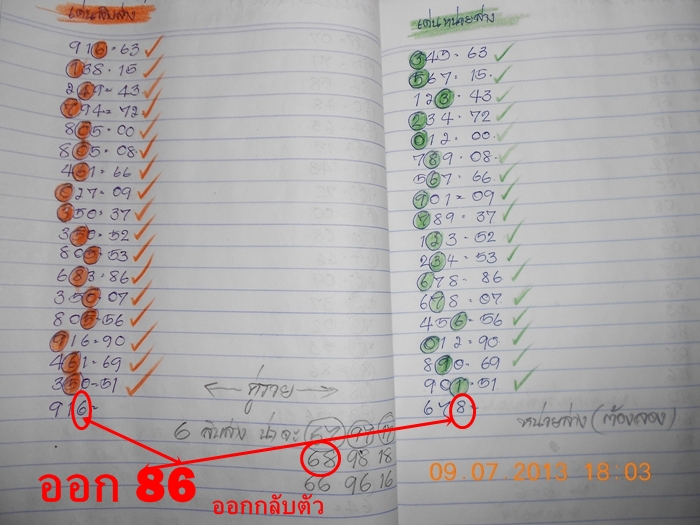 เด่นสิบล่าง
916 = 63 ✓
138 - 15 ✓
249 = 43 ✓
794 = 72 ✓
805 = 00 ✓
805 = 08 ✓
461 = 66 ✓
027 = 09 ✓
350 = 37 ✓
350 = 52 ✓
805 = 53 ✓
683 = 86 ✓
350 = 07 ✓
805 = 56 ✓
916 = 90 ✓
461 = 69 ✓
350 - 51 ✓
916 =
เด่นหน่วยล่าง
345 - 63 ✓
567 = 15 ✓
123 - 43 ✓
234 - 72 ✓
012 = 00 ✓
789 - 08 ✓
567 - 66 ✓
901 = 09 ✓
789 - 37 ✓
123 - 52 ✓
234 - 53 ✓
678 - 86 ✓
678 = 07 ✓
456 = 56 ✓
012 = 90 ✓
890 - 69 ✓
901 - 51 ✓
678 =
หน่วยล่าง (ต้องลอง)
6 สิบล่าง น่าจะ
68 98 18
66 96 16
ออก 86 ออกกลับตัว
09.07.2013 18:03